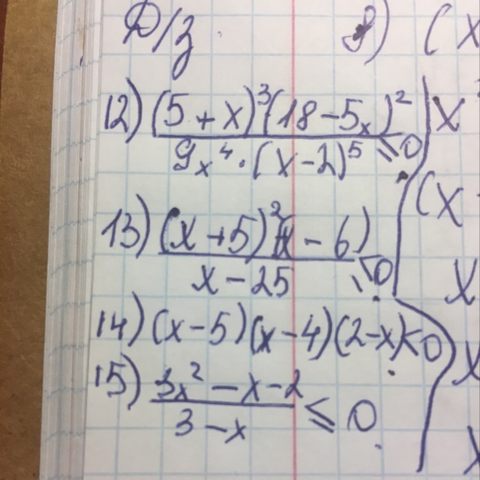 Д/з. 8) (x
12) (5+x)³(18-5x)² / 9x⁴·(x-2)⁵ ≤ 0
13) (x+5)²(x-6) / x-25 ≤ 0
14) (x-5)(x-4)(2-x)<0
15) 3x²-x-2 / 3-x ≤ 0